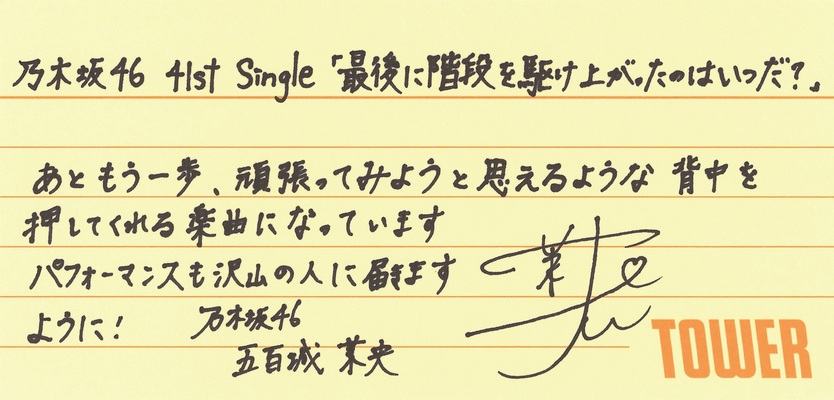 乃木坂46 41st Single「最後に階段を駆け上がったのはいつだ?」
あともう一歩、頑張ってみようと思えるような 背中を
押してくれる楽曲になっています
パフォーマンスも沢山の人に届きます
ように!
乃木坂46
五百城 茉央
TOWER